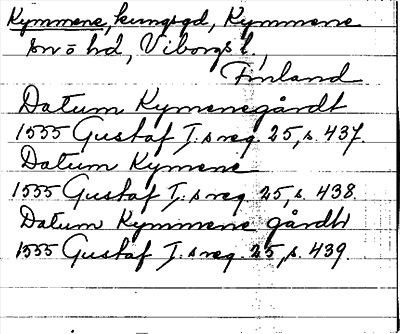 Kymmene, kungsgd, Kymmene
sn o hd, Viborgs l.,
Finland
Datum Kymenegårdt
1555 Gustaf I.s reg. 25, s. 437.
Datum Kymene
1555 Gustaf I.s reg. 25, s. 438.
Datum Kymmene gårdh
1555 Gustaf I.s reg. 25, s. 439.